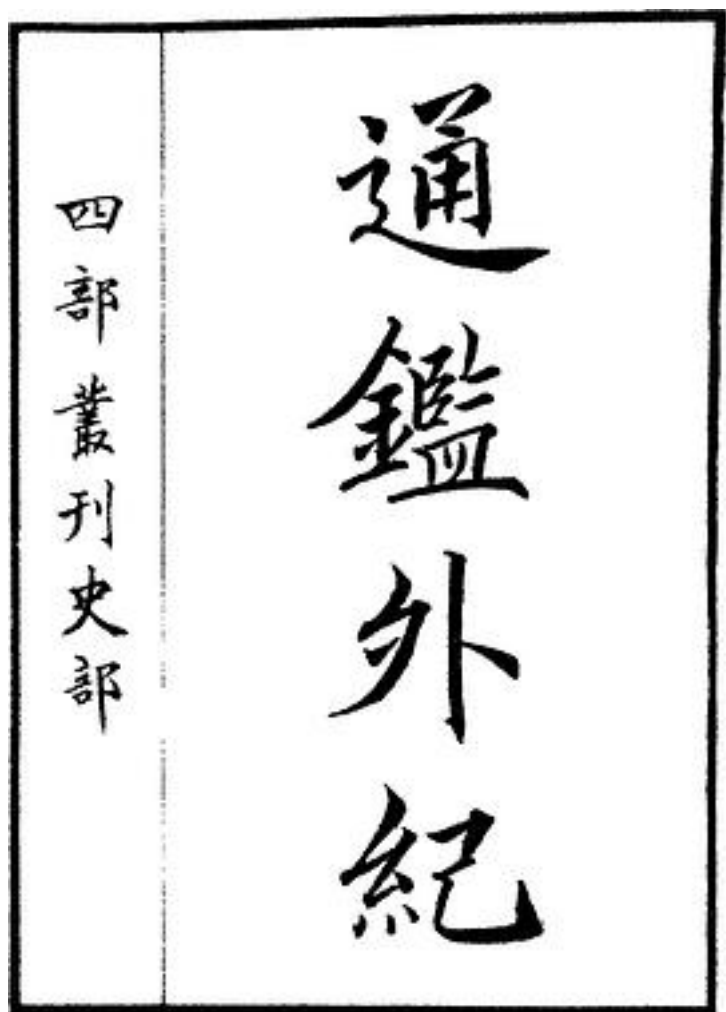 通鑑外紀
四部叢刊史部